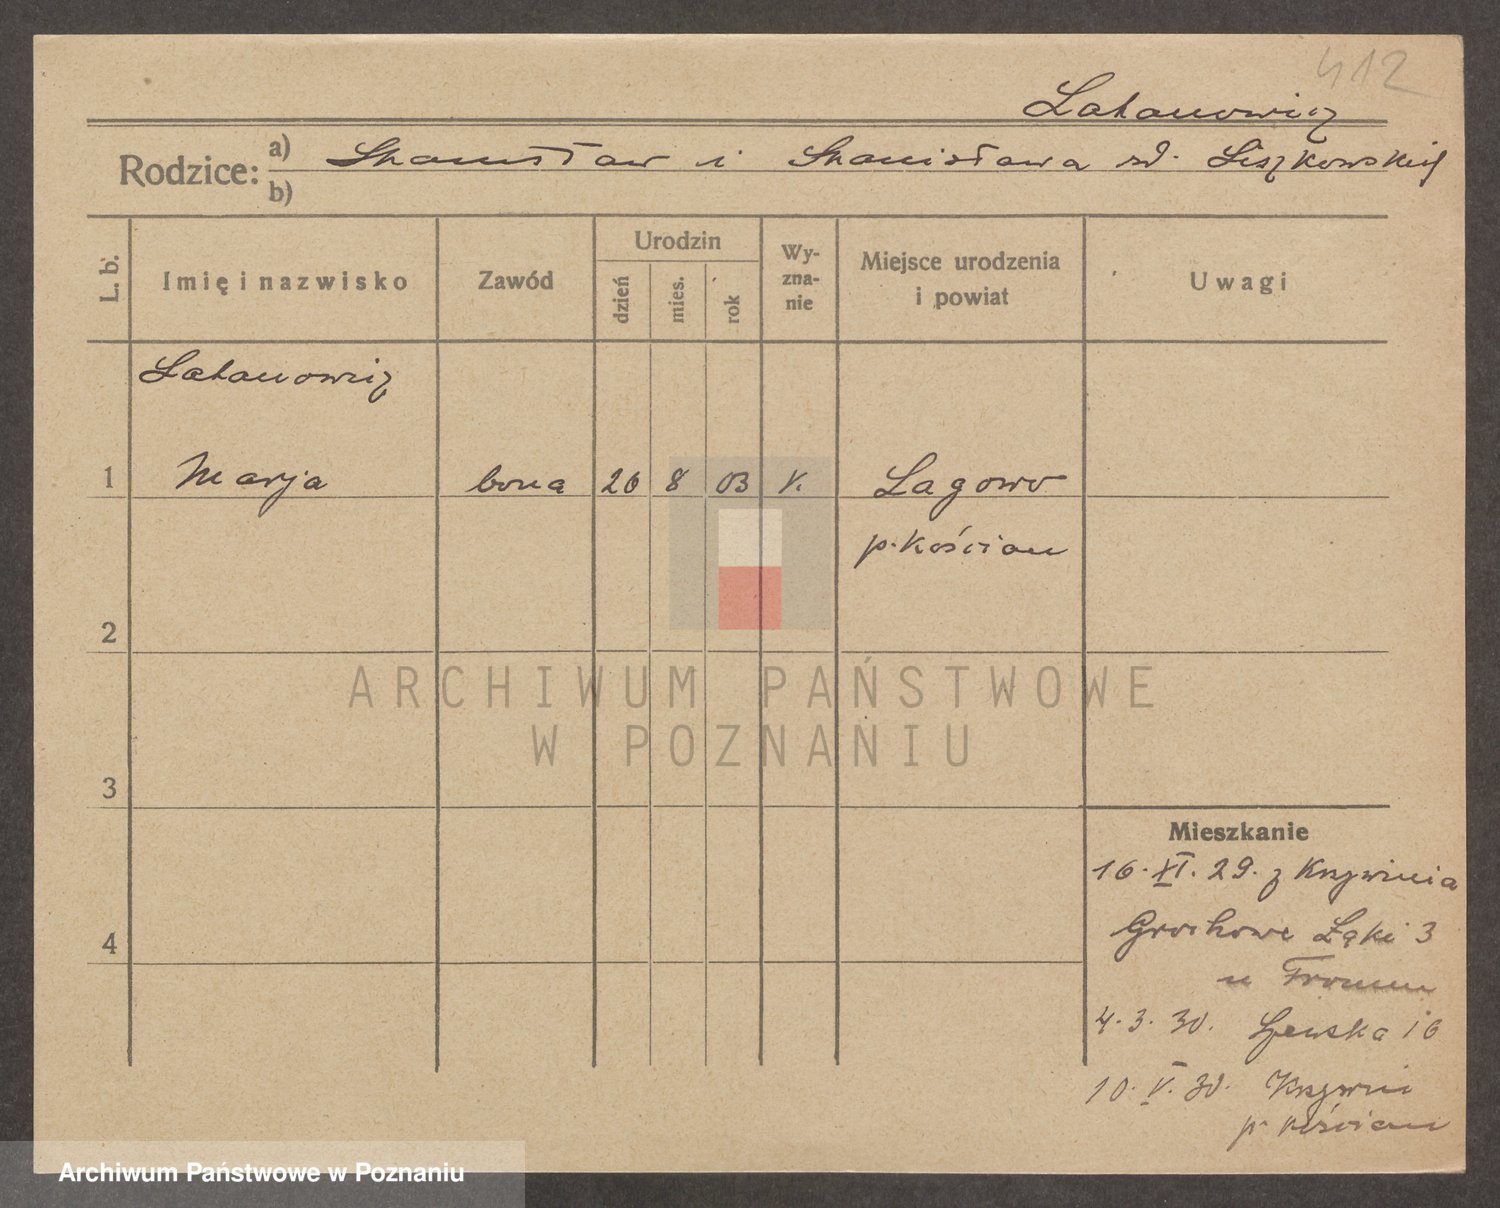 412
Latanowicz
Rodzice: a) Stanisław i Stanisława zd. Liszkowskich
b)
L. b.
Imię i nazwisko
Zawód
Urodzin
dzień
mies.
rok
Wy-
zna-
nie
Miejsce urodzenia
i powiat
Uwagi
Latanowicz
1 Marja bona 26 8 03 r. Łagowo
p. Kościan
2
ARCHIWUM PAŃSTWOWE
W POZNANIU
3
Mieszkanie
16. XI. 29. z Krzywinia
4
Grochowe Łąki 3
u Fromm
4. 3. 30.
10. V. 30. Krzywiń
p. Kościan
Archiwum Państwowe w Poznaniu